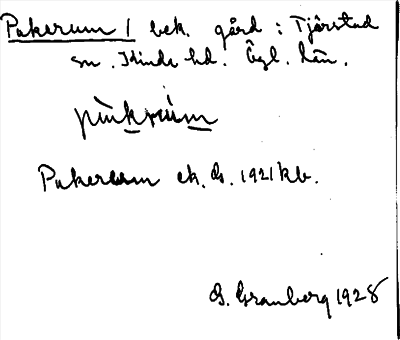 Pukerum 1 bek. gård i Tjärstad
sn. Kinda hd. Ögl. län.
pùkrùm
Pukerum ek. bl. 1921 kb.
G. Granberg 1928